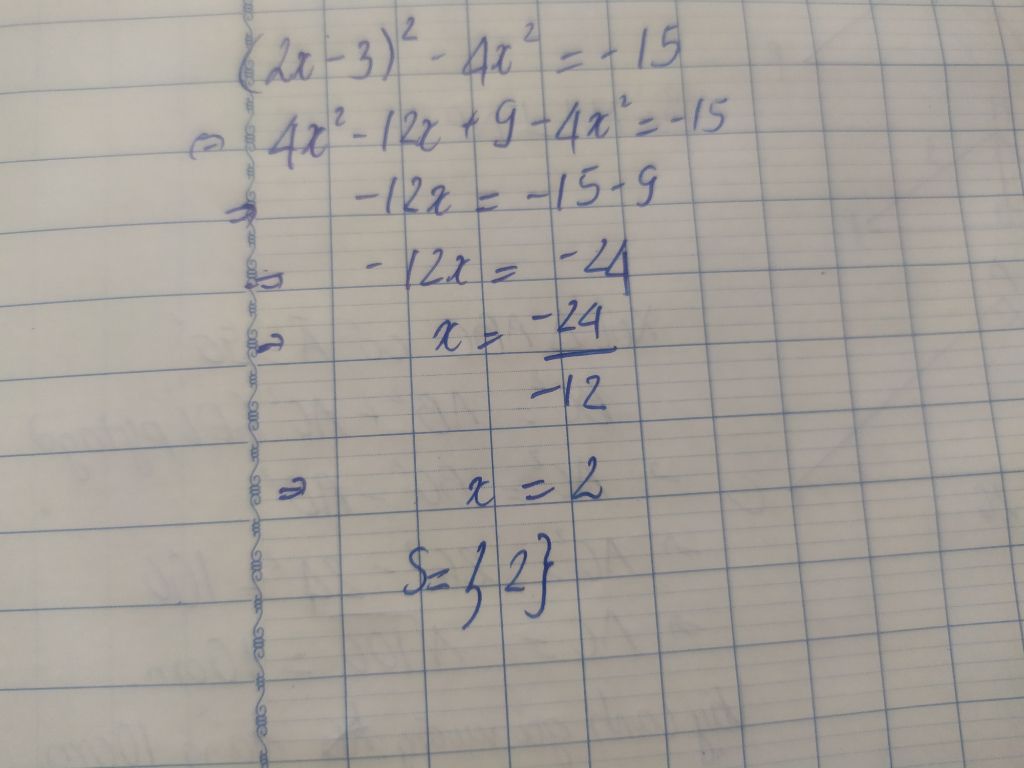 (2x-3)² - 4x² = -15
⇒ 4x² - 12x + 9 - 4x² = -15
⇒ -12x = -15 - 9
⇒ -12x = -24
⇒ x = -24
-12
⇒ x = 2
S = {2}